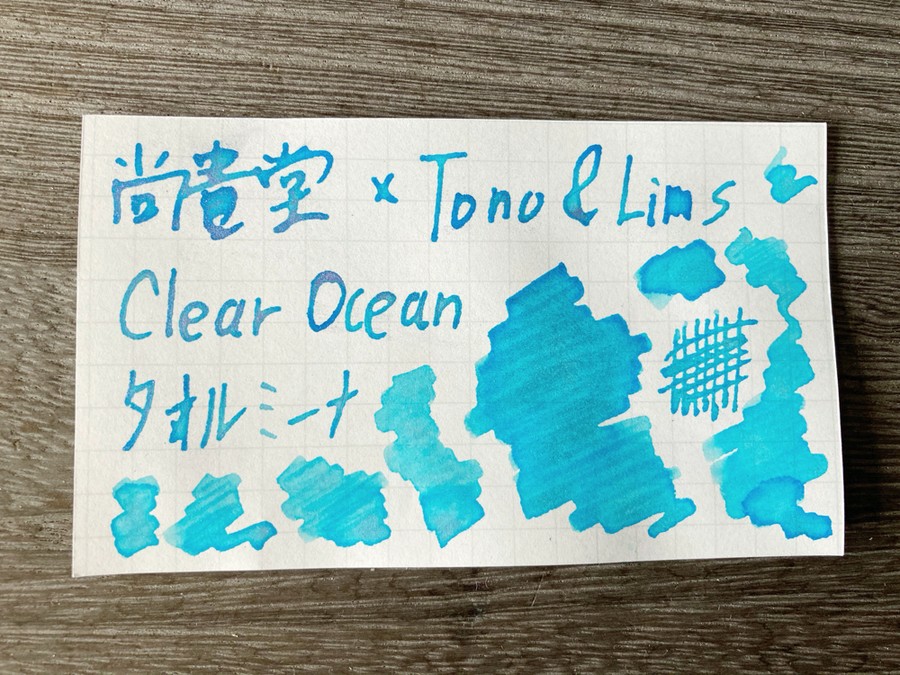 尚貴堂 × Tono & Lims
Clear Ocean
タオルミーナ